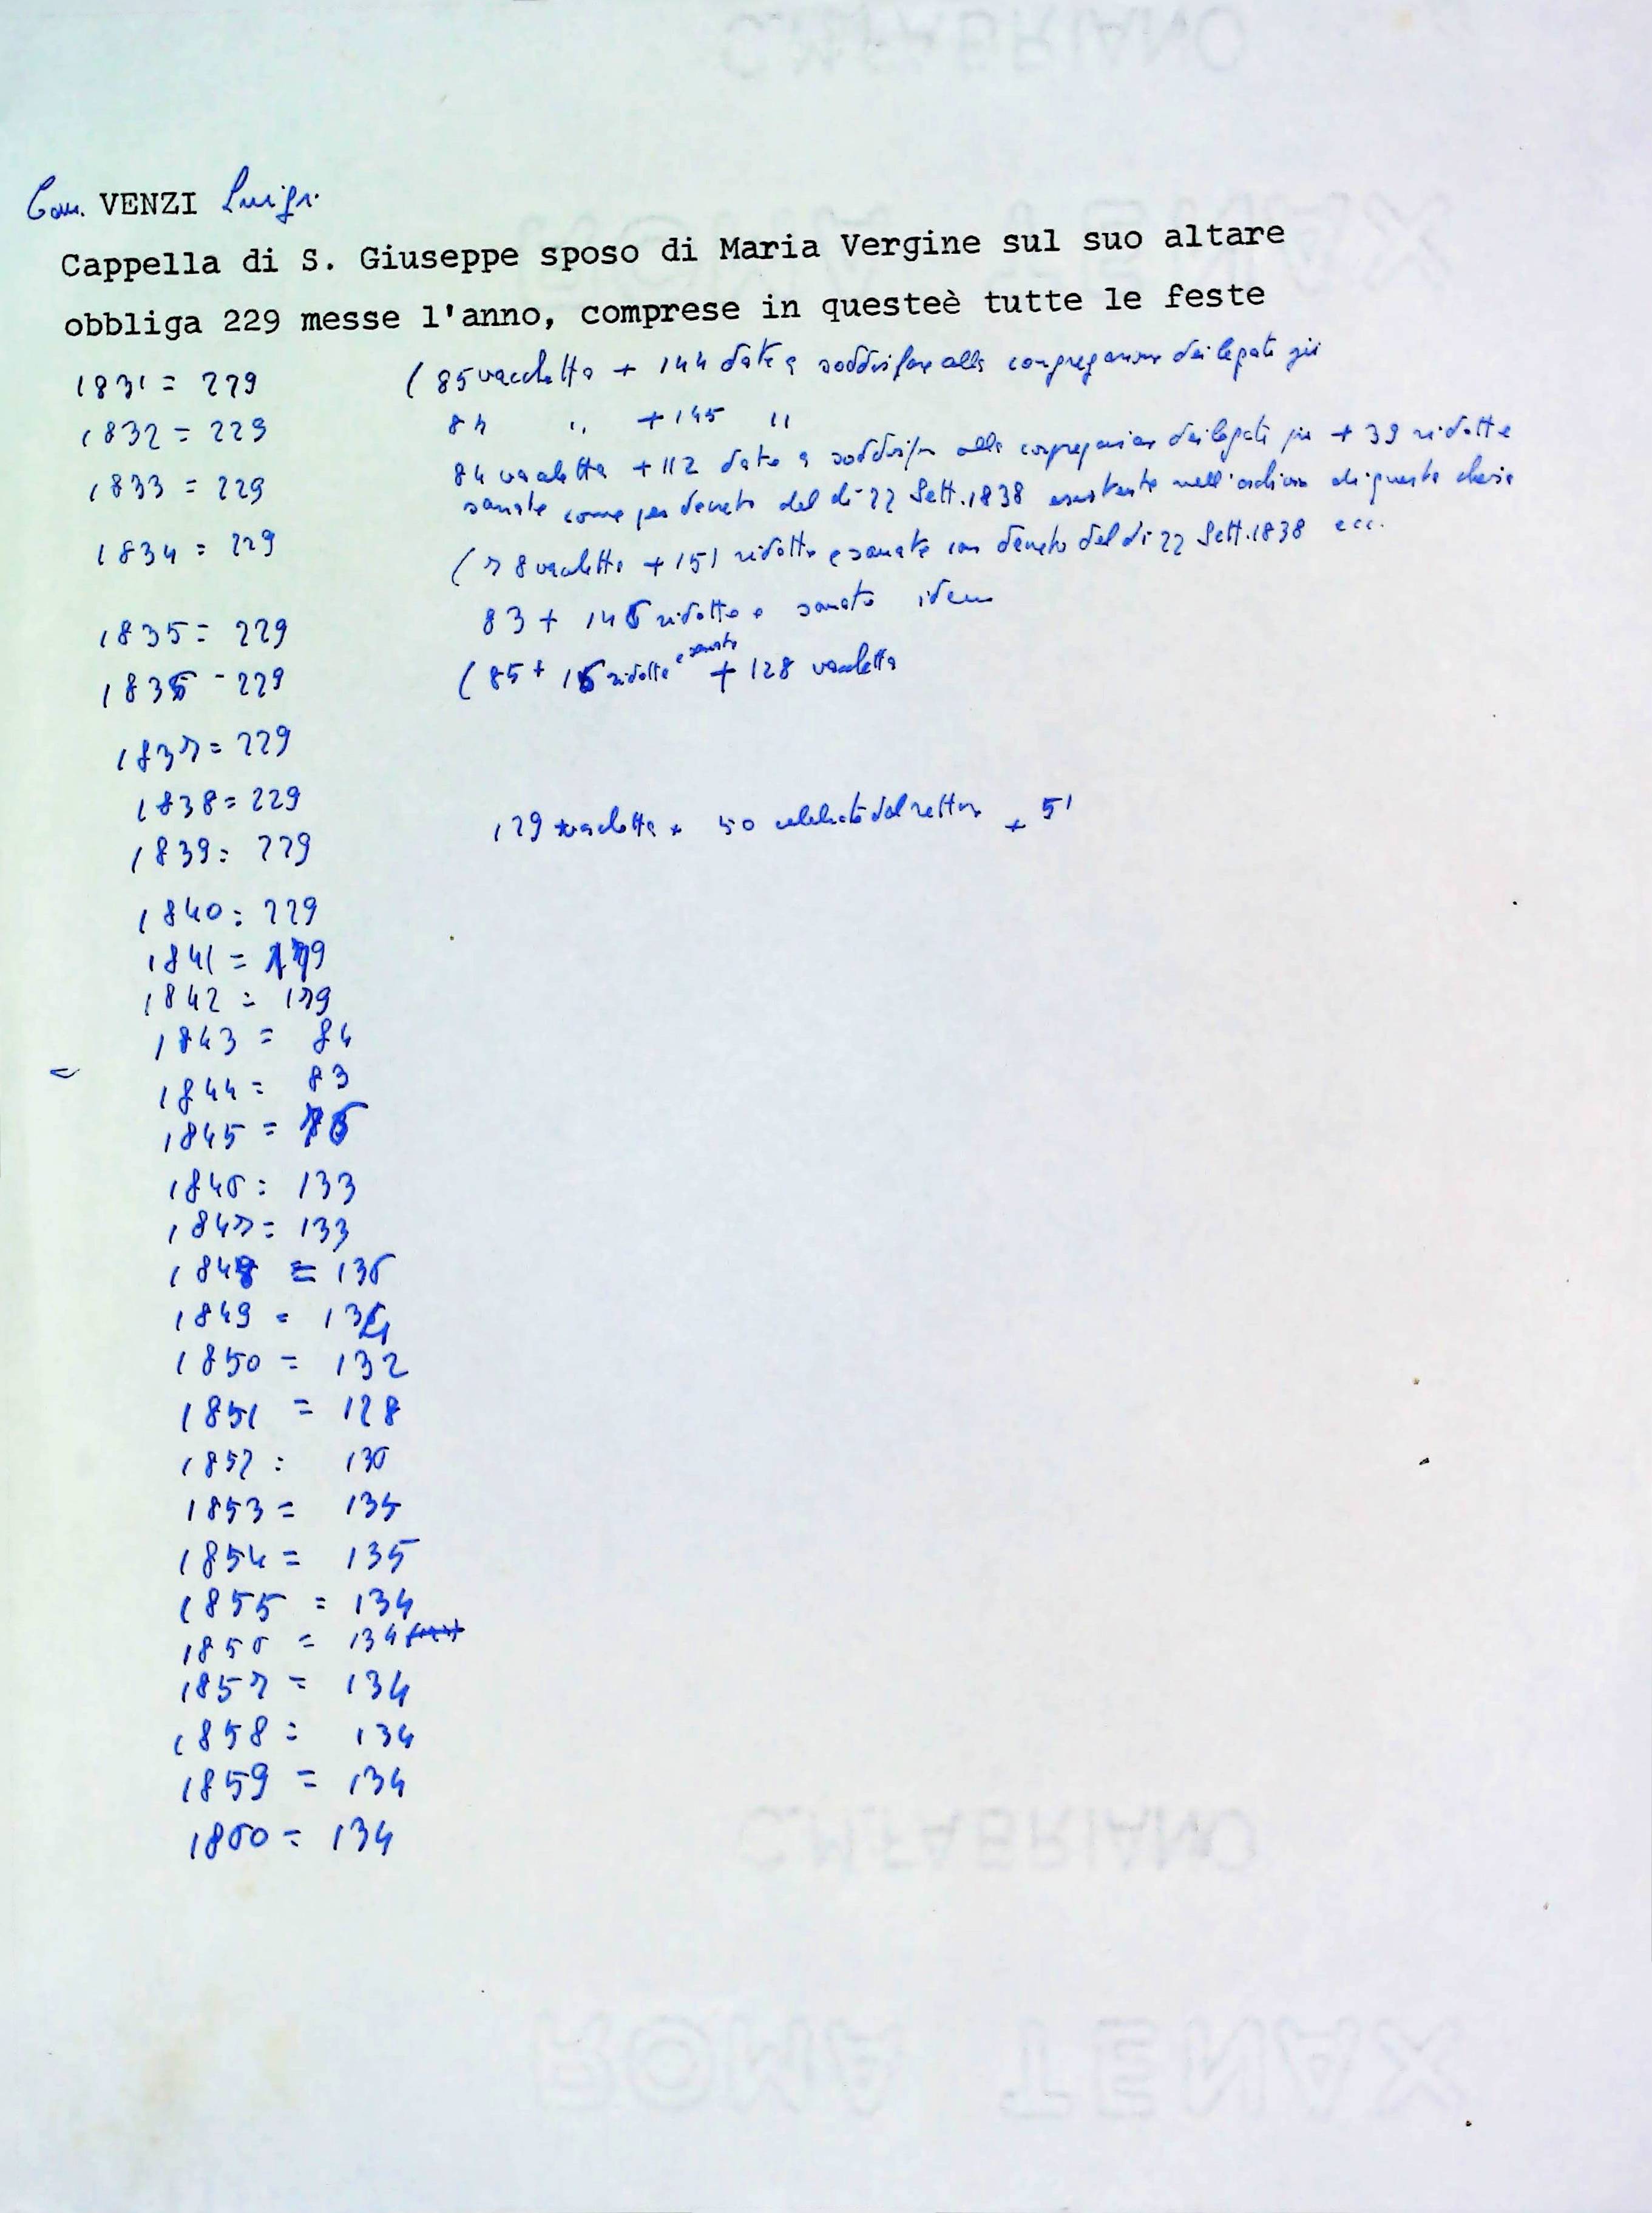 Can. VENZI Luigi
Cappella di S. Giuseppe sposo di Maria Vergine sul suo altare
obbliga 229 messe l'anno, comprese in questeè tutte le feste
1831 = 229 ( 85 vacchetta + 144 date a soddisfare alla congregazione dei legati pii
1832 = 229 84 " + 145 "
1833 = 229 84 vacchetta + 112 date a soddisfare alla congregazione dei legati pii + 33 ridotte
sanate come per decreto del dì 22 Sett. 1838 esistente nell'archivio di questa chiesa
1834 = 229 ( 78 vacchetta + 151 ridotte e sanate con decreto del dì 22 Sett. 1838 ecc.
1835 = 229 83 + 146 ridotte e sanate idem
1836 = 229 ( 85 + 16 ridotte e sanate + 128 vacchetta
1837 = 229
1838 = 229
1839 = 229 129 vacchetta + 50 celebrate dal rettore + 51
1840 = 229
1841 = 179
1842 = 179
1843 = 84
1844 = 83
1845 =
1846 = 133
1847 = 133
1848 = 136
1849 = 134
1850 = 132
1851 = 128
1852 = 136
1853 = 135
1854 = 135
1855 = 134
1856 = 134
1857 = 134
1858 = 134
1859 = 134
1860 = 134
C.M.FABRIANO
ROMA TENAX